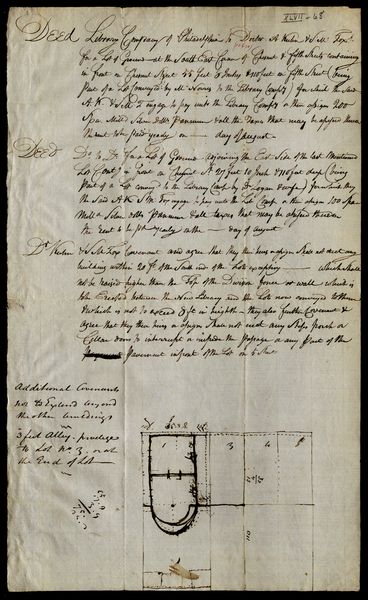 XLVII - 68
DEED Library Company of Philadelphia to Doctor A Kuhn & S M Fox
for a Lot of Ground at the South East Corner of Chesnut & fifth Streets containing
in front on Chesnut Street 35 feet 3 Inches & 110 feet on fifth Street being
Part of a Lot conveyed by M Norris to the Library Comp for which the said
A K & S M F engage to pay unto the Library Comp or their assigns 200
Span. Mill'd Silver dolls & all the Taxes that may be assessed thereon
the rent to be paid yearly on day of August
DEED Do to Do for a Lot of Ground adjoining the East Side of the last Mentioned
Lot Cont in front on Chesnut St 27 feet 10 Inch & 110 feet deep being
Part of a Lot conveyed to the Library Comp by for which they
the said A K & S M Fox engage to pay unto the Library Comp or their assigns 100 Span
Mill'd Silver dolls & all taxes that may be assessed thereon
the rent to be pd yearly on the day of August
Dr Kuhn & S M Fox Covenant and agree that they their heirs & assigns Shall not erect any
building within 20 ft of the South end of the Lot excepting which Shall
not be raised higher than the Top of the Division fence or wall which is
to be Erected between the New Library and the Lot now conveyed to them
& which is not to exceed ft in heighth they also further Covenant &
agree that they their heirs or assigns Shall not erect any Steps porch or
Cellar door to interrupt or impede the Passage or any Part of the
Pavement in front of the Lot on 5 Street
Additional Covenants
not to Extend beyond
the other buildings
3 feet Alley privilege
to Lot No 3, or at
the End of Lot
1
3
4
5
110